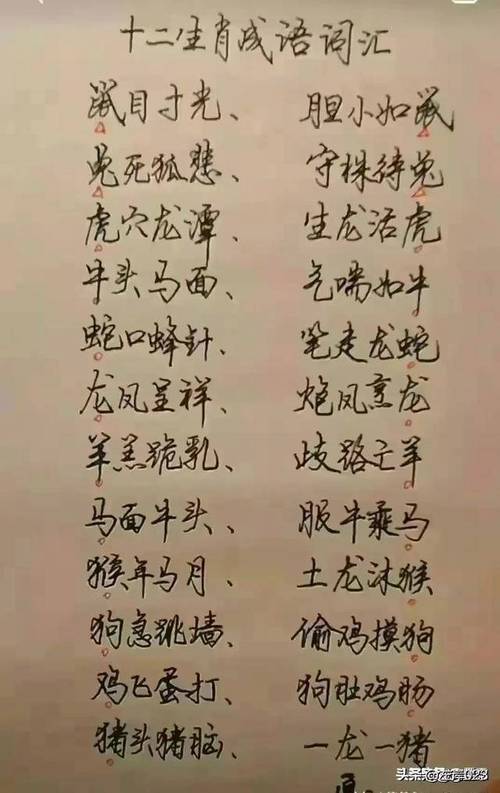 十二生肖成语词汇
鼠目寸光、 胆小如鼠
兔死狐悲、 守株待兔
虎穴龙潭、 生龙活虎
牛头马面、 气喘如牛
蛇口蜂针、 笔走龙蛇
龙凤呈祥、 炮凤烹龙
羊羔跪乳、 歧路亡羊
马面牛头、 服牛乘马
猴年马月、 土龙沐猴
狗急跳墙、 偷鸡摸狗
鸡飞蛋打、 狗肚鸡肠
猪头猪脑、 一龙一猪